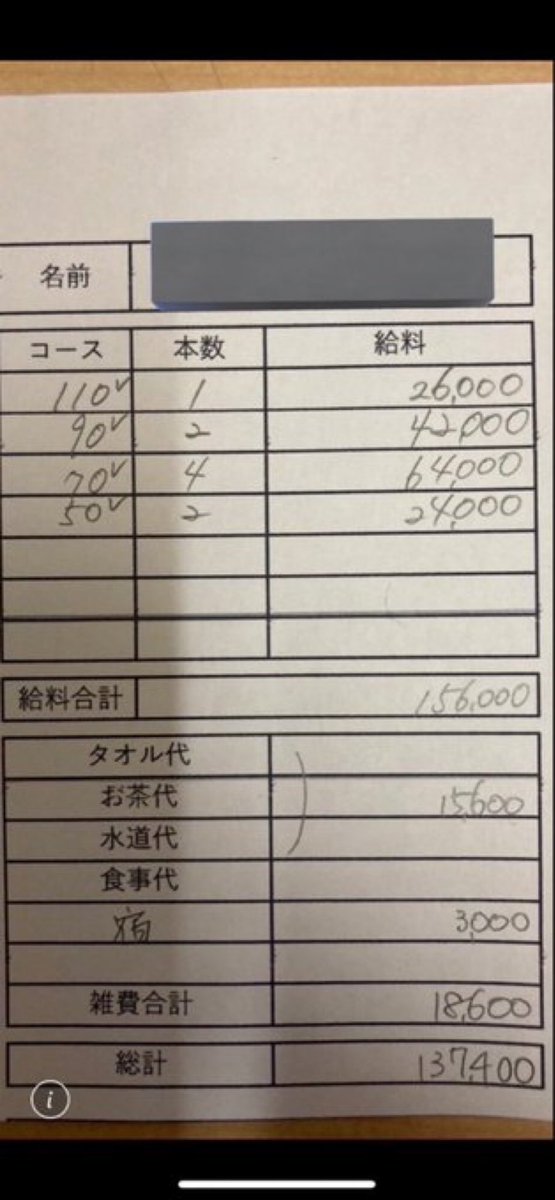 名前
コース 本数 給料
110✓ 1 26,000
90✓ 2 42,000
70✓ 4 64,000
50✓ 2 24,000
給料合計 156,000
タオル代
お茶代 15,600
水道代
食事代
宿 3,000
雑費合計 18,600
総計 137,400